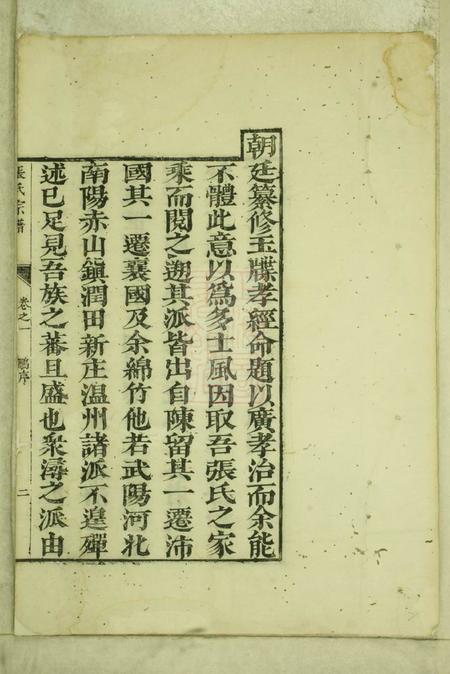 朝廷纂修玉牒孝經命題以廣孝治而余能
不體此意以爲多士風因取吾張氏之家
乘而閱之遡其派皆出自陳留其一遷沛
國其一遷襄國及余綿竹他若武陽河北
南陽赤山鎮潤田新庄温州諸派不遑殫
述已足見吾族之蕃且盛也衆潯之派由
張氏宗譜
卷之一
序
二